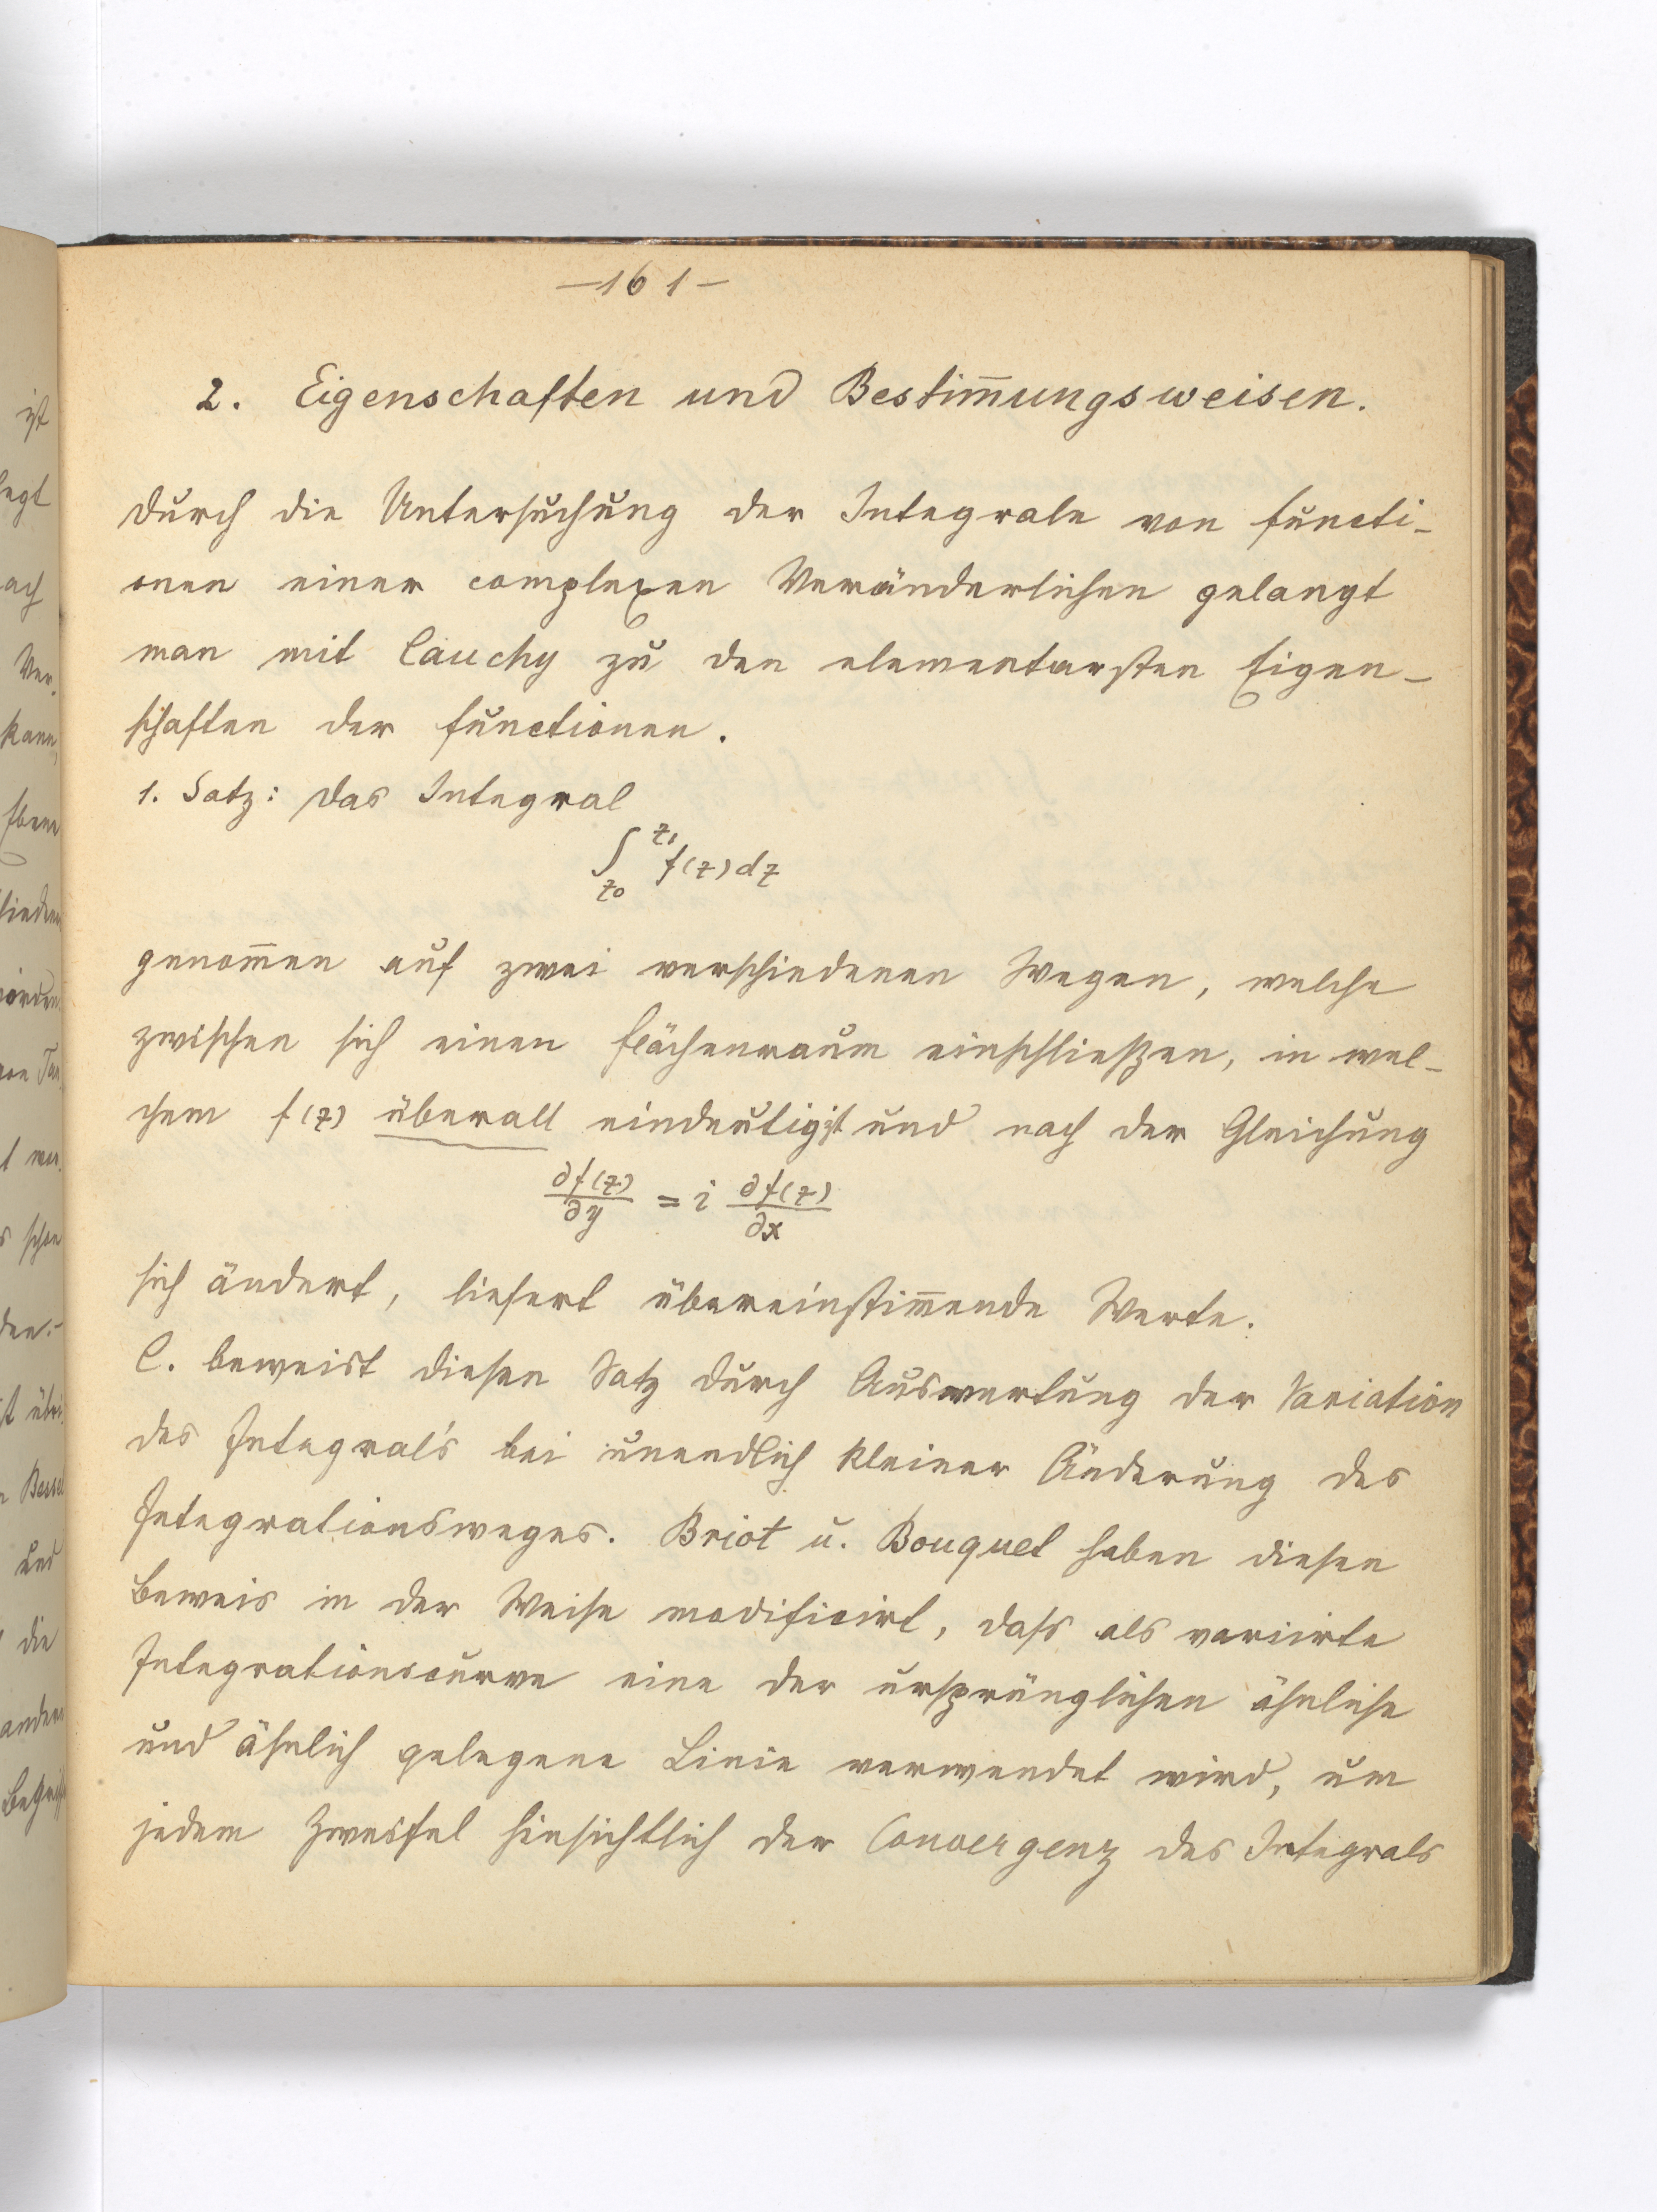 —161—
2. Eigenschaften und Bestim̅ungsweisen.
Durch die Untersuchung der Integrale von Functi-
onen einer complexen Veränderlichen gelangt
man mit Cauchy zu den elementarsten Eigen-
schaften der Functionen.
1. Satz: Das Integral
∫_{z₀}^{z₁} f(z) dz
genom̅en auf zwei verschiedenen Wegen, welche
zwischen sich einen Flächenraum einschließen, in wel-
chem f(z) überall eindeutig ist und nach der Gleichung
∂f(z)/∂y = i ∂f(z)/∂x
sich ändert, liefert übereinstim̅ende Werte.
C. beweist diesen Satz durch Auswertung der Variation
des Integral's bei unendlich kleiner Änderung des
Integrationsweges. Briot u. Bouquet haben diesen
Beweis in der Weise modificirt, dass als variirte
Integrationscurve eine der ursprünglichen ähnliche
und ähnlich gelegene Linie verwendet wird, um
jedem Zweifel hinsichtlich der Convergenz des Integrals